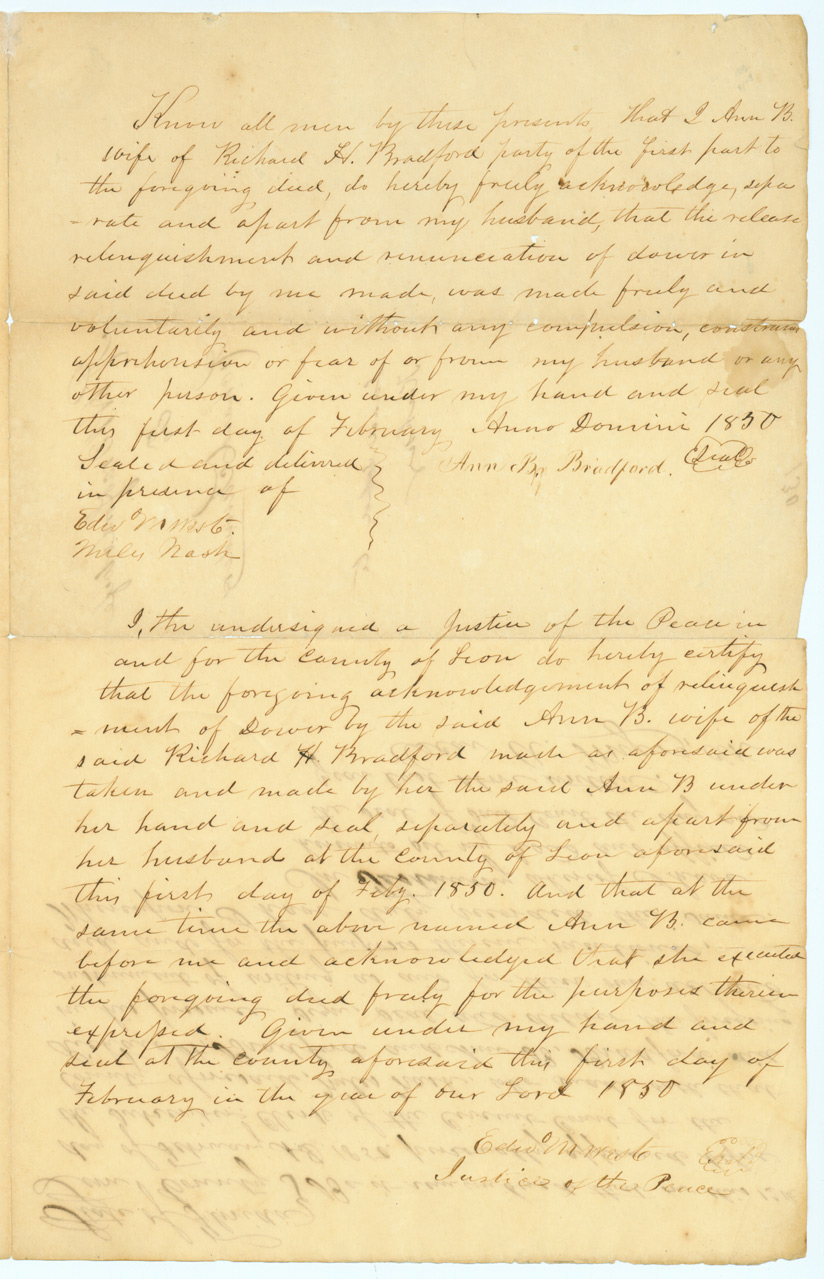 Know all men by these presents, that I Ann B.
wife of Richard H. Bradford party of the first part to
the foregoing deed, do hereby freely acknowledge, sepa
-rate and apart from my husband, that the release
relinquishment and renunciation of dower in
said deed by me made, was made freely and
voluntarily and without any compulsion, constraint
apprehension or fear of or from my husband or any
other person. Given under my hand and seal
this first day of February Anno Domini 1850
Sealed and delivered Ann B. Bradford. Seal
in presence of
Edwd M West.
Miles Nash
I, the undersigned a Justice of the Peace in
and for the County of Leon do hereby certify
that the foregoing acknowledgement of relinquish
-ment of Dower by the said Ann B. wife of the
said Richard H Bradford made as aforesaid was
taken and made by her the said Ann B under
her hand and seal, separately and apart from
her husband at the County of Leon aforesaid
this first day of Feby. 1850. And that at the
same time the above named Ann B. came
before me and acknowledged that she executed
the foregoing deed freely for the purposes therein
expressed. Given under my hand and
seal at the county aforesaid this first day of
February in the year of our Lord 1850
Edwd M West Seal
Justice of the Peace